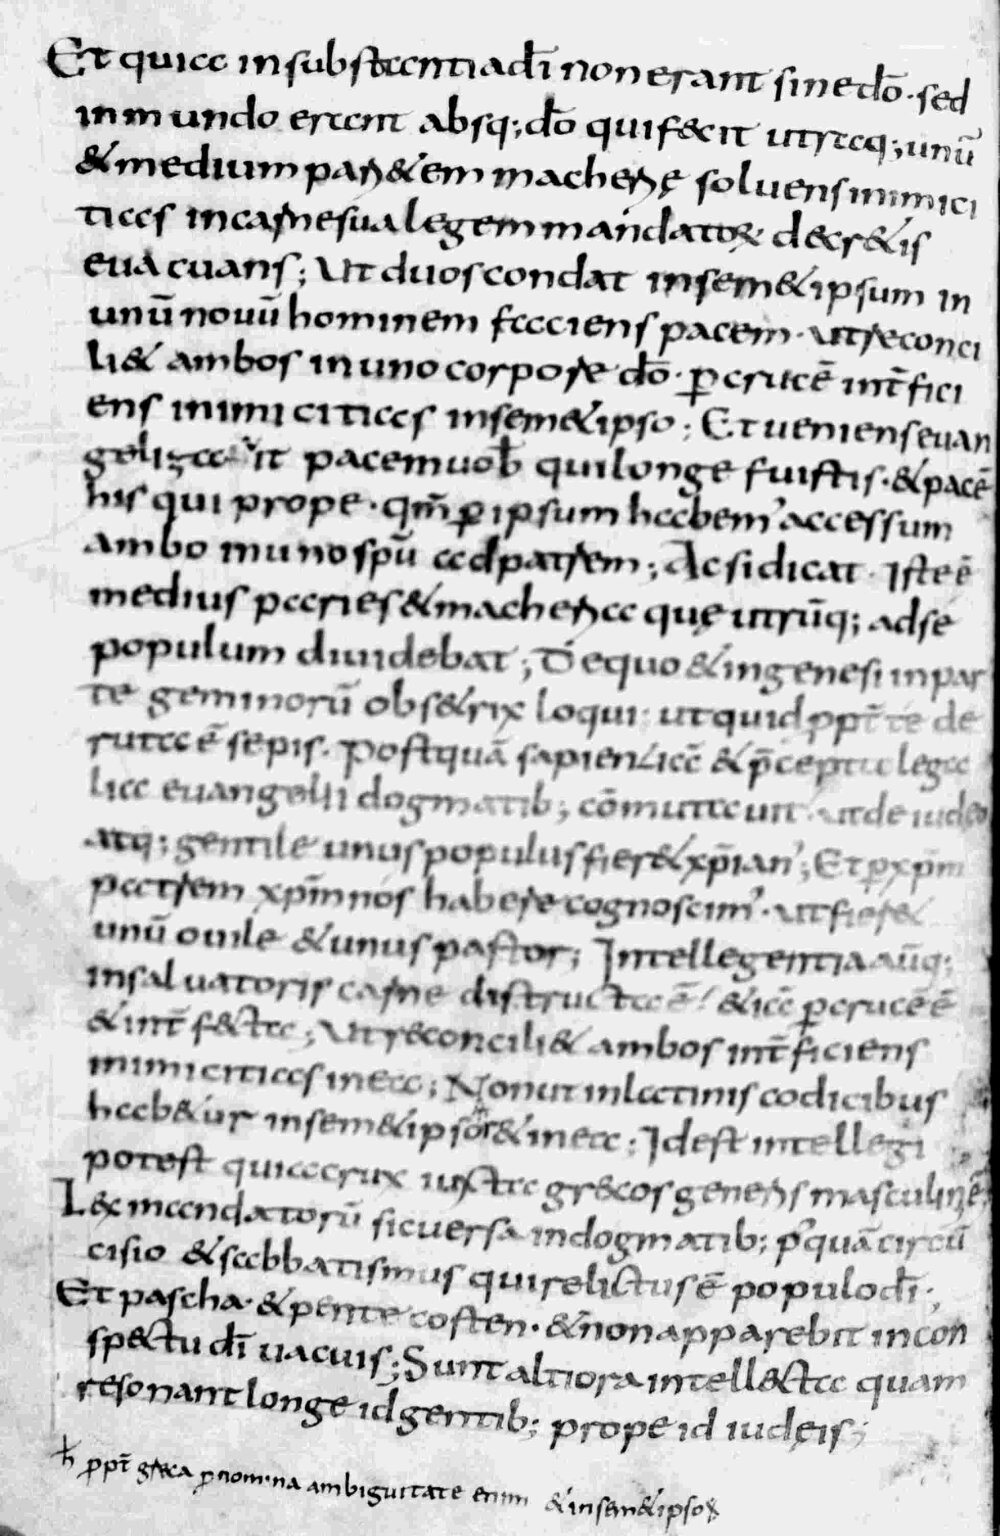 Et quia in substantia dī non erant sine dō· sed
in mundo erant absq; dō qui fecit utraq; unū
& medium pari&em macherię soluens inimici
tias in carne sua legem mandatoꝝ decr&is
euacuans; Ut duos condat in sem&ipsum in
unū nouū hominem faciens pacem· ut reconci
li& ambos in uno corpore dō· ꝑ crucē int̄fici
ens inimicitias in sem&ipso; Et ueniens euan
gelizauit pacem uob̄ qui longe fuistis· & pacē
his qui prope· qm̄ ꝑ ipsum habem' accessum
ambo in uno spū ad patrem; Ac si dicat· Iste ē
medius paries & macheria quę utrūq; ad se
populum diuidebat; De quo & in genesi in par
te geminorū obs&rix loqui· ut quid ꝓpt̄ te de
ruta ē sepis· Postquā sapientia & p̄cepta lega
lia euangelii dogmatib; cōmutauit· ut de iudeo
atq; gentile unus populus fier& xp̄ian'; Et ꝑ xp̄m
patrem xp̄m nos habere cognoscim'· ut fier&
unū ouile & unus pastor; Intellegentia aūq;
in saluatoris carne distructa ē & ia ꝑ crucē ē
& int̄fecta; Ut reconcili& ambos int̄ficiens
inimicitias in ea; Non ut in latinis codicibus
hab&ur in sem&ipso & in ea; Id est intellegi
potest quia crux iuxta grecos generis masculini ē
Lex mandatorū sic uersa in dogmatib; p'quā circū
cisio & sabbatismus qui relictus ē populo dī;
Et pascha· & pentecosten· & non apparebit in con
spectu dī uacuis; Sunt altiora intellecta quam
resonant longe id gentib; prope id iudęis;
ħ ꝓpt̄ greca ꝓnomina ambiguitate enim & in sem&ipso